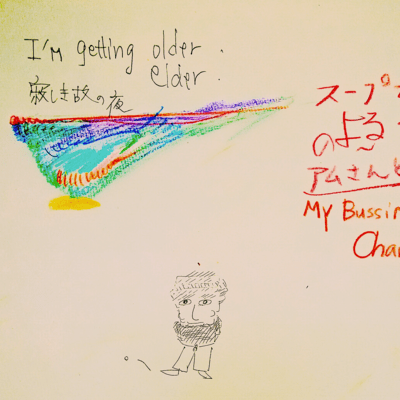 I'm getting older.
elder.
寂しき故の夜
スープ
のよる
アムさんと
My Bussin
Char